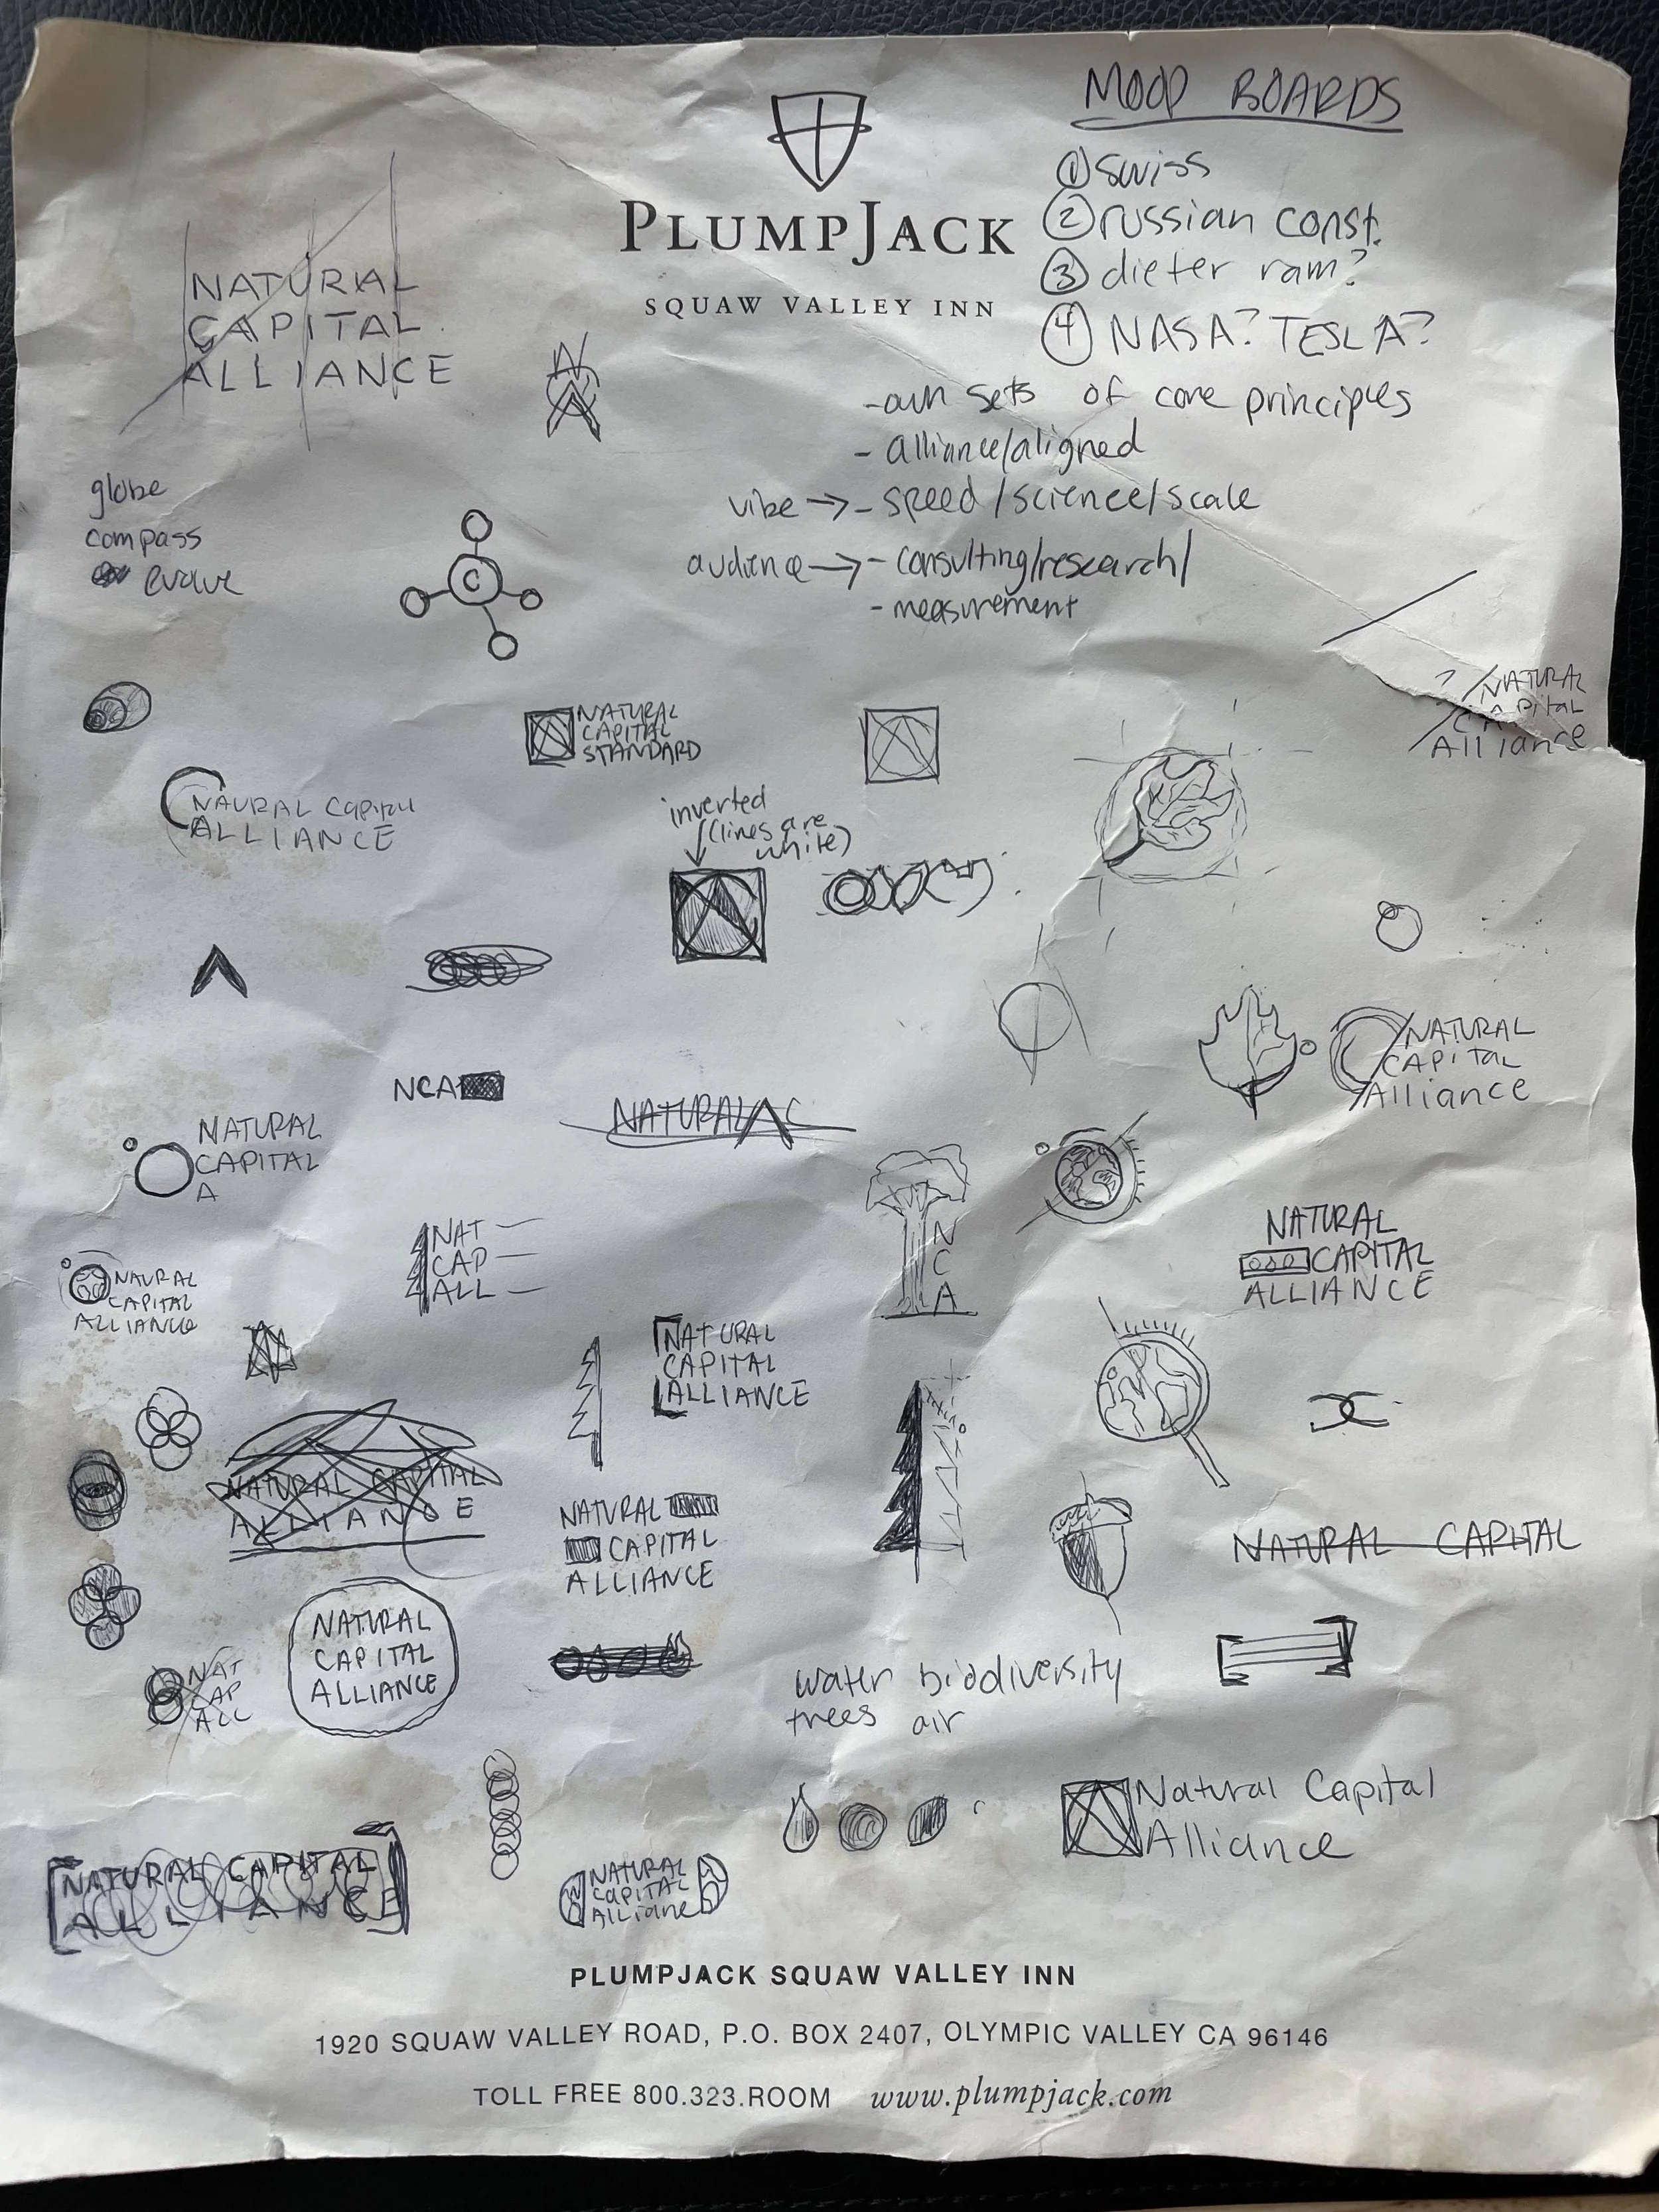 MOOD BOARDS
① swiss
② russian const.
③ dieter ram?
④ NASA? TESLA?
PLUMPJACK
SQUAW VALLEY INN
NATURAL
CAPITAL
ALLIANCE
N
A
- own sets of core principles
- alliance/aligned
vibe → - speed/science/scale
audience → - consulting/research/
- measurement
globe
compass
evolve
C
NATURAL
CAPITAL
STANDARD
? NATURAL
CAPITAL
Alliance
NAURAL CAPITAL
ALLIANCE
inverted
(lines are
white)
NCA
NATURAL
NATURAL
CAPITAL
Alliance
NATURAL
CAPITAL
A
NAT
CAP
ALL
N
C
A
NATURAL
CAPITAL
ALLIANCE
NAURAL
CAPITAL
ALLIANCE
NATURAL
CAPITAL
ALLIANCE
NATURAL CAPITAL
ALLIANCE
NATURAL
CAPITAL
ALLIANCE
NATURAL CAPITAL
NATURAL
CAPITAL
ALLIANCE
NAT
CAP
ALL
water biodiversity
trees air
Natural Capital
Alliance
NATURAL CAPITAL
ALLIANCE
NATURAL
CAPITAL
Alliane
PLUMPJACK SQUAW VALLEY INN
1920 SQUAW VALLEY ROAD, P.O. BOX 2407, OLYMPIC VALLEY CA 96146
TOLL FREE 800.323.ROOM www.plumpjack.com